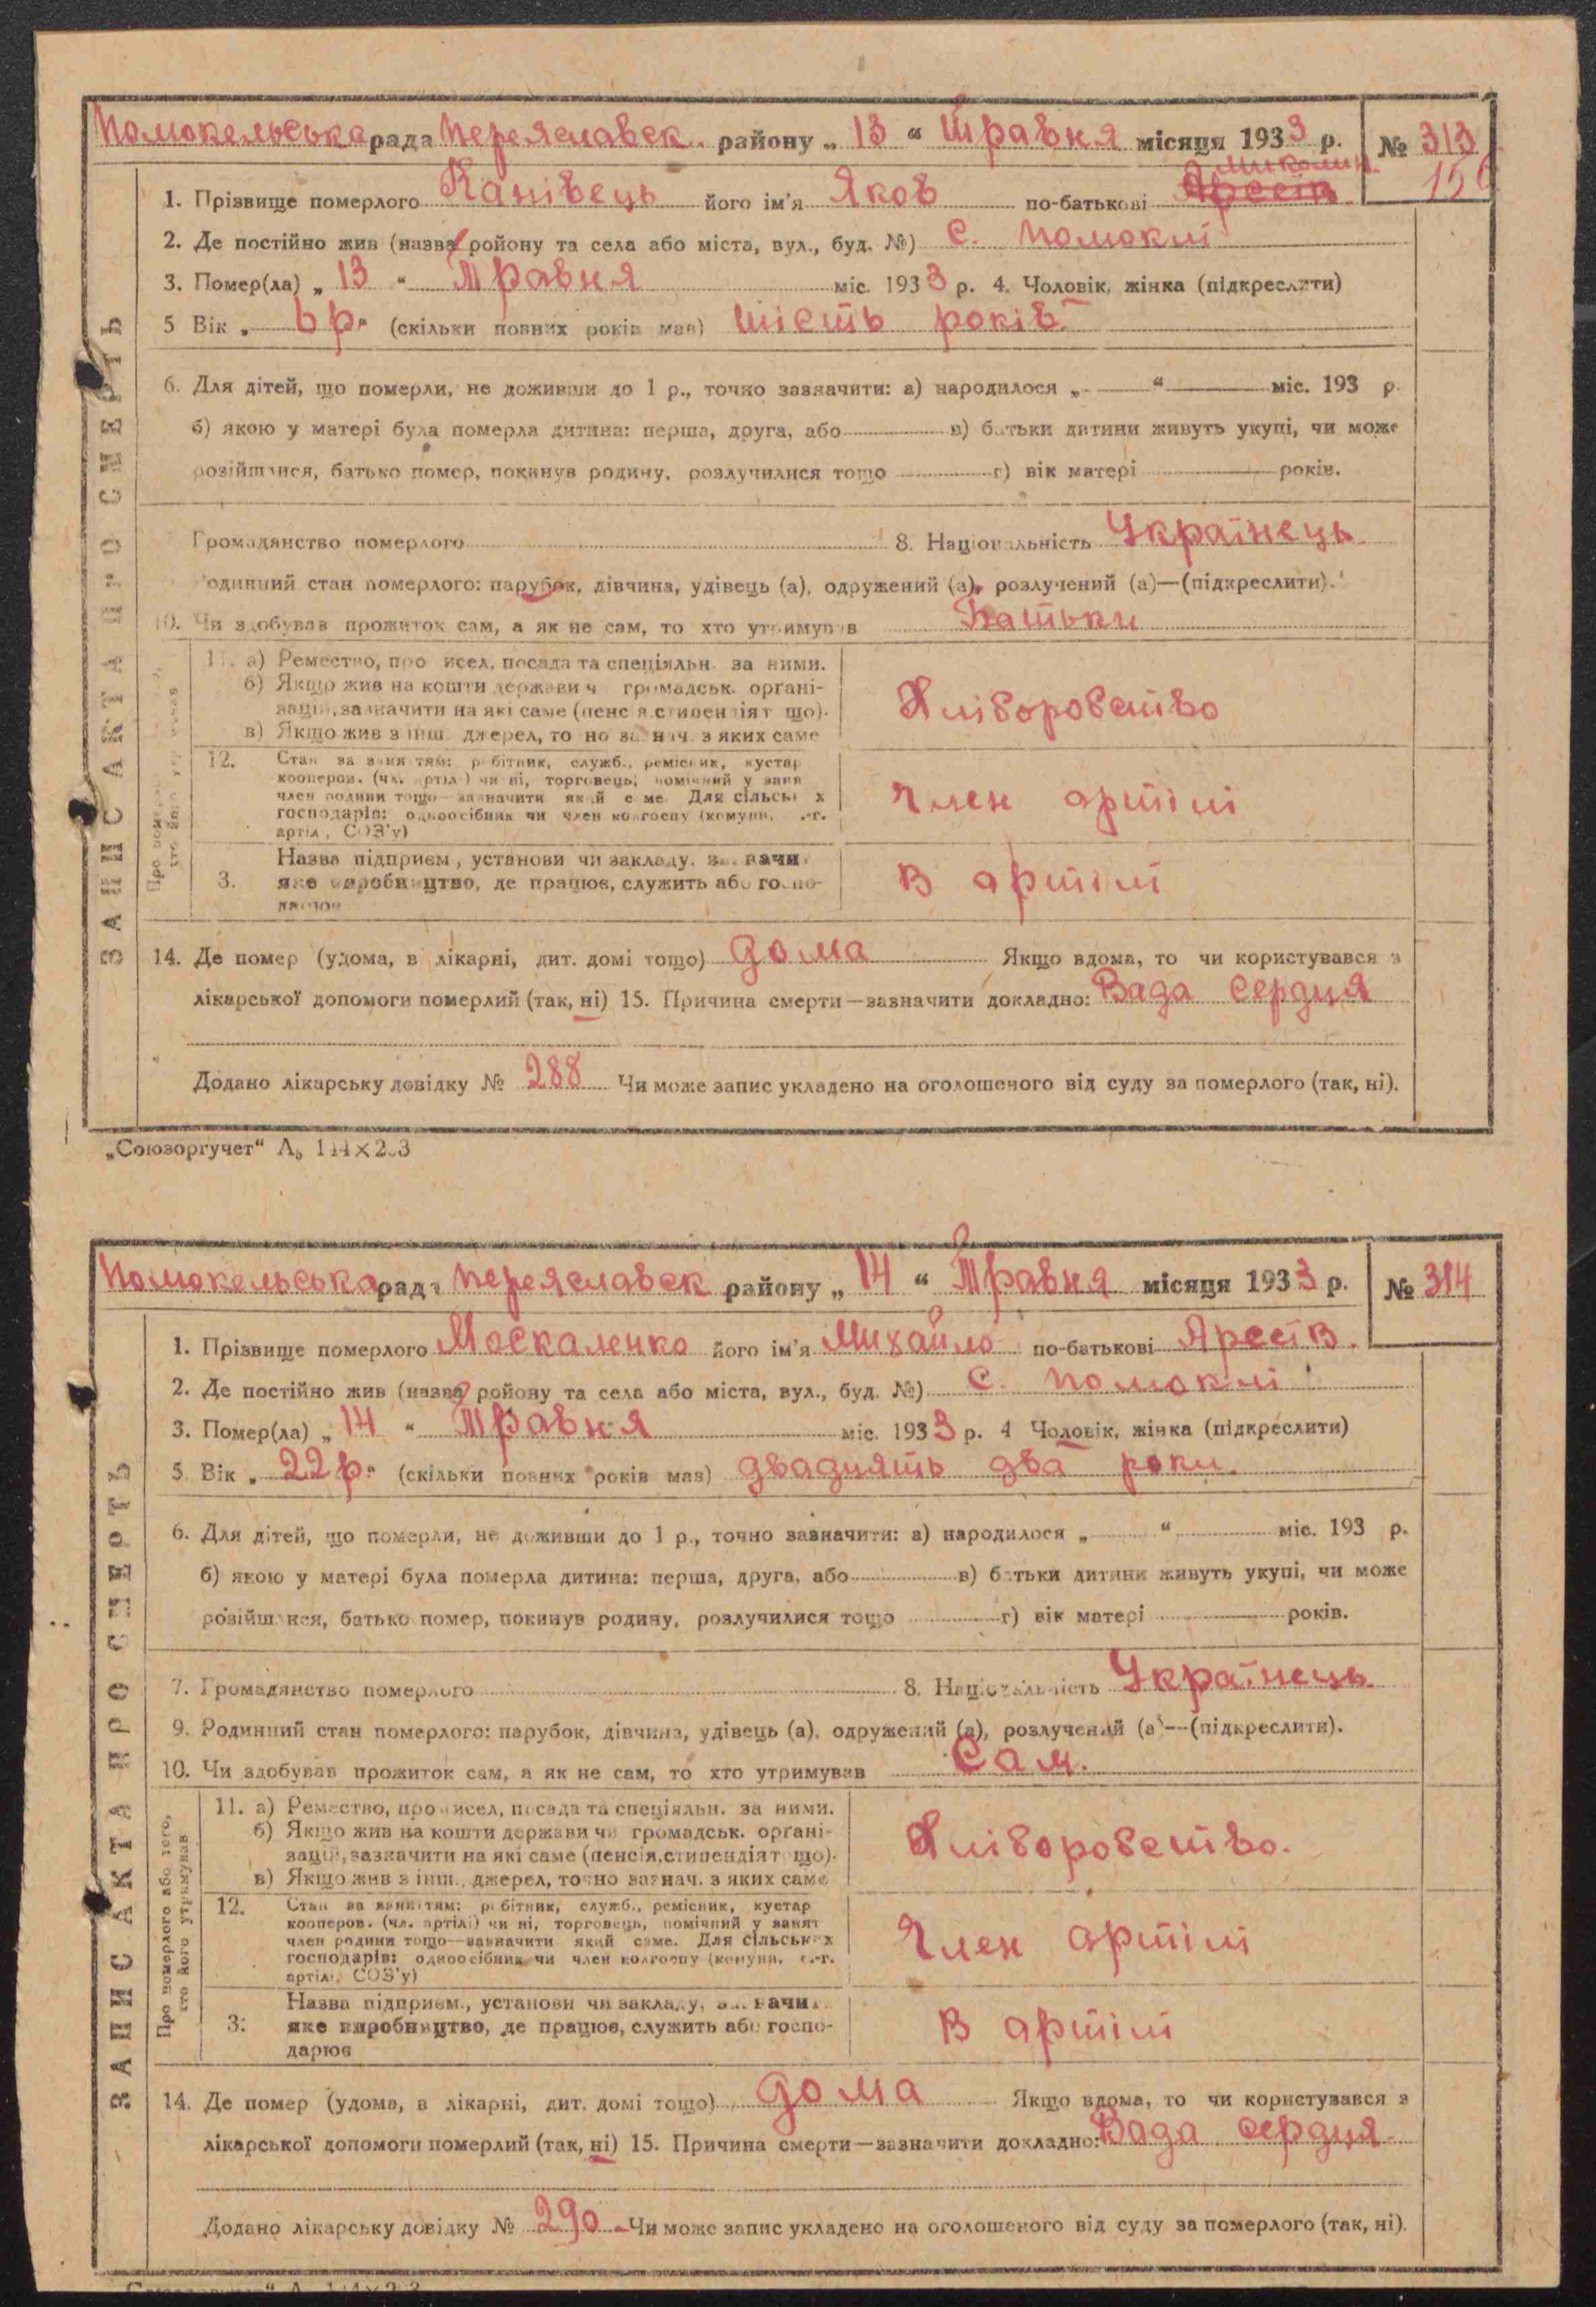 Помокельська рада Переяславск. району „ 13 “ Травня місяця 1933 р. № 313
Миколин 156
1. Прізвище померлого Канівець його ім'я Яков по-батькові
2. Де постійно жив (назва ройону та села або міста, вул., буд. №) с. Помоклі
3. Помер(ла) „ 13 “ Травня міс. 1933 р. 4. Чоловік, жінка (підкреслити)
5 Вік „ 6 р. “ (скільки повних років мав) шість років
6. Для дітей, що померли, не доживши до 1 р., точно зазначити: а) народилося „ “ міс. 193 р.
б) якою у матері була померла дитина: перша, друга, або в) батьки дитини живуть укупі, чи може
розійшлися, батько помер, покинув родину, розлучилися тощо г) вік матері років.
Громадянство померлого 8. Національність Українець
Родинний стан померлого: парубок, дівчина, удівець (а), одружений (а), розлучений (а)—(підкреслити).
10. Чи здобував прожиток сам, а як не сам, то хто утримував Батьки
11. а) Ремество, про исел, посада та спеціяльн. за ними.
б) Якщо жив на кошти держави ч громадськ. орґані-
зацій, зазначити на які саме (пенс я, стипендіят що).
в) Якщо жив з інш. джерел, то но зазнач. з яких саме
Хліборобство
12. Стан за заняттям: робітник, служб., ремісник, кустар
кооперов. (чл. артілі) чи ні, торговець, помічний у занят
член родини тощо—зазначити який саме. Для сільськ х
господарів: одноосібник чи член колгоспу (комуни, с.-г.
артіл, СОЗ'у)
Член артілі
3. Назва підприєм, установи чи закладу, зазначи
яке виробництво, де працює, служить або госпо-
дарює
В артілі
14. Де помер (удома, в лікарні, дит. домі тощо) дома Якщо вдома, то чи користувався з
лікарської допомоги померлий (так, ні) 15. Причина смерти—зазначити докладно: Вада серця
Додано лікарську довідку № 288 Чи може запис укладено на оголошеного від суду за померлого (так, ні).
ЗАПИС АКТА ПРО СМЕРТЬ
„Союзоргучет“
Помокельська рада Переяславск району „ 14 “ Травня місяця 1933 р. № 314
1. Прізвище померлого Москаленко його ім'я Михайло по-батькові Арсеів.
2. Де постійно жив (назва ройону та села або міста, вул., буд. №) с. Помоклі
3. Помер(ла) „ 14 “ Травня міс. 1933 р. 4 Чоловік, жінка (підкреслити)
5. Вік „ 22 р. “ (скільки повних років мав) двадцять два роки.
6. Для дітей, що померли, не доживши до 1 р., точно зазначити: а) народилося „ “ міс. 193 р.
б) якою у матері була померла дитина: перша, друга, або в) батьки дитини живуть укупі, чи може
розійшлися, батько помер, покинув родину, розлучилися тощо г) вік матері років.
7. Громадянство померлого 8. Національність Українець
9. Родинний стан померлого: парубок, дівчина, удівець (а), одружений (а), розлучений (а)—(підкреслити).
10. Чи здобував прожиток сам, а як не сам, то хто утримував Сам.
Про померлого або того,
хто його утримував
11. а) Ремество, про исел, посада та спеціяльн. за ними.
б) Якщо жив на кошти держави чи громадськ. орґані-
зацій, зазначити на які саме (пенсія, стипендіят що).
в) Якщо жив з інш. джерел, точно зазнач. з яких саме
Хліборобство.
12. Стан за заняттям: робітник, служб., ремісник, кустар
кооперов. (чл. артілі) чи ні, торговець, помічний у занят
член родини тощо—зазначити який саме. Для сільськ х
господарів: одноосібник чи член колгоспу (комуни, с.-г.
артілі, СОЗ'у)
Член артілі
3. Назва підприєм., установи чи закладу, зазначи
яке виробництво, де працює, служить або госпо-
дарює
В артілі
14. Де помер (удома, в лікарні, дит. домі тощо) дома Якщо вдома, то чи користувався з
лікарської допомоги померлий (так, ні) 15. Причина смерти—зазначити докладно: Вада серця.
Додано лікарську довідку № 290 Чи може запис укладено на оголошеного від суду за померлого (так, ні).
ЗАПИС АКТА ПРО СМЕРТЬ